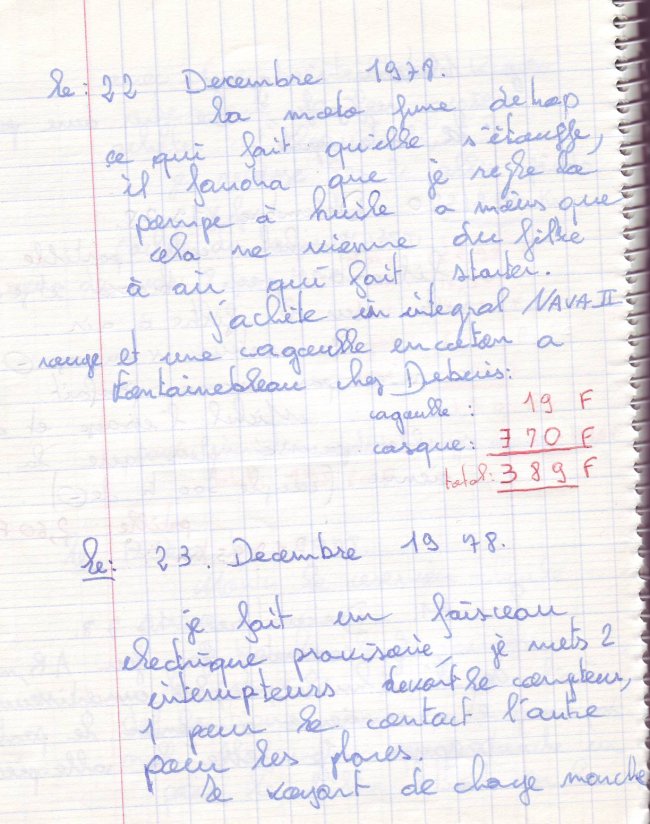 le: 22 Decembre 1978.
la moto fume de trop
ce qui fait qu'elle s'étouffe,
il faudra que je regle la
pompe à huile a moins que
cela ne vienne du filtre
à air qui fait starter.
j'achète un integral NAVA II
rouge et une cagoulle en coton a
Fontainebleau chez
cagoulle : 19 F
casque: 370 F
total: 389 F
le: 23. Decembre 1978.
je fait un faisceau
electrique provisorie, je mets 2
interupteurs devant le compteur,
1 pour le contact l'autre
pour les phares.
le voyant de charge marche